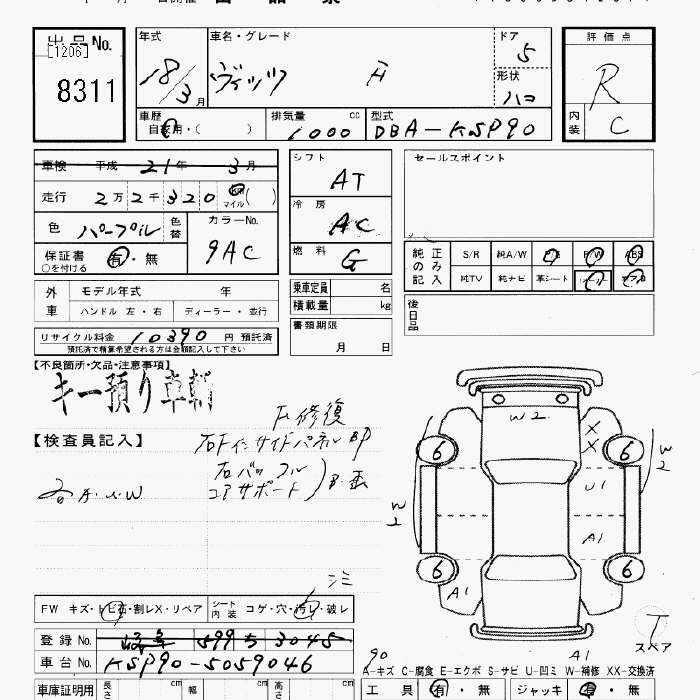 出品No.
[1206]
8311
年式
18/3月
車名・グレード
ヴィッツ F
ドア
5
形状
ハコ
評価点
R
内装
C
車歴
自家用・( )
排気量 cc
1000
型式
DBA-KSP90
車検 平成 21年 3月
走行 2万2千320 km マイル( )
色 パープル 色替
カラーNo.
9AC
保証書 有・無
○を付ける
シフト
AT
冷房
AC
燃料
G
セールスポイント
純正のみ記入
S/R 純A/W P/S P/W ABS
純TV 純ナビ 革シート
外車
モデル年式 年
ハンドル 左・右 ディーラー・並行
乗車定員 名
積載量 kg
書類期限
月 日
後日品
リサイクル料金 10390 円 預託済
預託済で積算希望される方は金額記入して下さい
【不良箇所・欠品・注意事項】
キー預り車輌
【検査員記入】
F修復
右Fインサイドパネル BP
コアサポート
W2
X
X
6
6
6
6
U1
A1
A1
W2
W2
T
スペア
FW キズ・トビ石・割レX・リペア
シート内装 コゲ・穴・汚レ・破レ
登録No. 599 ち 3045
車台No. KSP90-5059046
90
A1
A-キズ C-腐食 E-エクボ S-サビ U-凹ミ W-補修 XX-交換済
車庫証明用 長さ cm 幅 cm 高さ cm
工具 有・無 ジャッキ 有・無